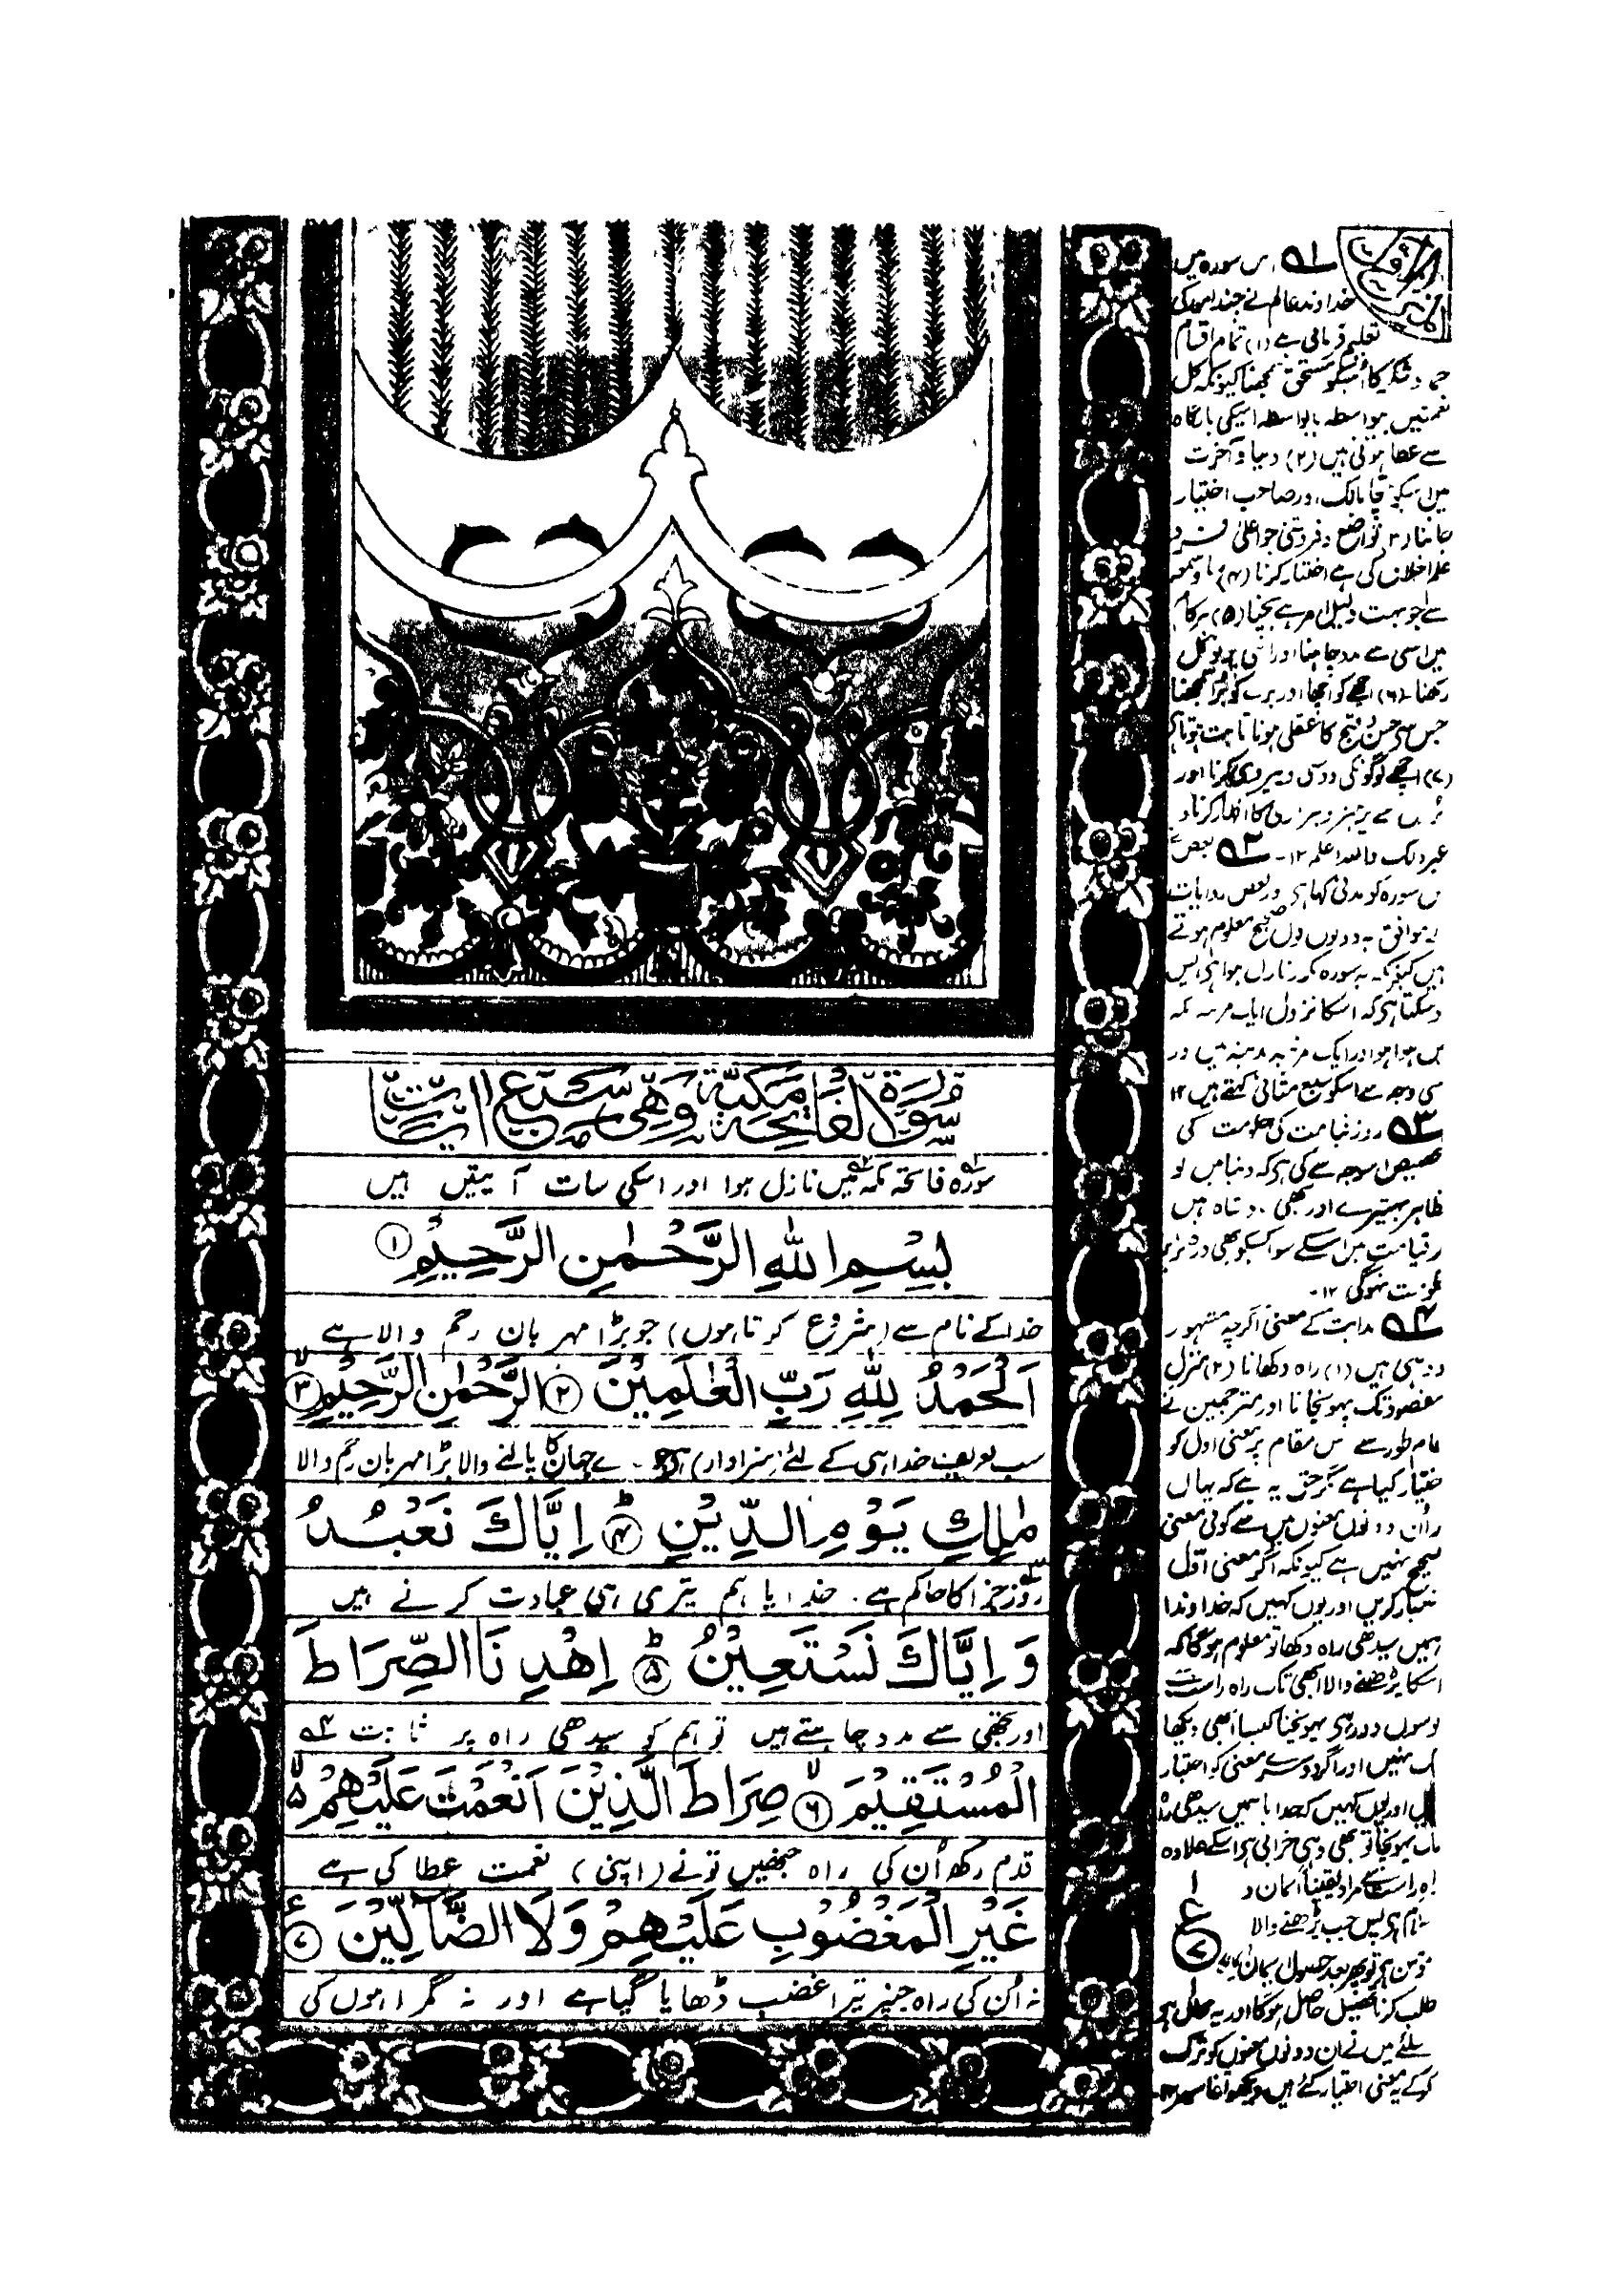 سُوْرَةُ الْفَاتِحَةِ مَكِّيَّةٌ وَّهِيَ سَبْعُ اٰيَاتٍ
سورہ فاتحہ مکہ میں نازل ہوا اور اسکی سات آیتیں ہیں
بِسْمِ اللّٰهِ الرَّحْمٰنِ الرَّحِيْمِ ①
خدا کے نام سے (شروع کرتا ہوں) جو بڑا مہربان رحم والا ہے
اَلْحَمْدُ لِلّٰهِ رَبِّ الْعٰلَمِيْنَ ② الرَّحْمٰنِ الرَّحِيْمِ ③
سب تعریف خدا ہی کے لئے (سزاوار) ہے جو جہان کا پالنے والا بڑا مہربان رحم والا
مٰلِكِ يَوْمِ الدِّيْنِ ④ اِيَّاكَ نَعْبُدُ
روز جزا کا حاکم ہے۔ خدایا ہم تیری ہی عبادت کرتے ہیں
وَ اِيَّاكَ نَسْتَعِيْنُ ⑤ اِهْدِنَا الصِّرَاطَ
اور تجھی سے مدد چاہتے ہیں تو ہم کو سیدھی راہ پر ثابت ۴
الْمُسْتَقِيْمَ ⑥ صِرَاطَ الَّذِيْنَ اَنْعَمْتَ عَلَيْهِمْ
قدم رکھ اُن کی راہ جنھیں تو نے (اپنی) نعمت عطا کی ہے
غَيْرِ الْمَغْضُوْبِ عَلَيْهِمْ وَلَا الضَّآلِّيْنَ ⑦
نہ اُن کی راہ جنپر تیرا غضب ڈھایا گیا ہے اور نہ گمراہوں کی
۱ اس سورہ میں
خداوند عالم نے چند امور کی
تعلیم فرمائی ہے (۱) تمام اقسام
حمد و شکر کا اُسکو مستحق سمجھنا کیونکہ کل
نعمتیں بواسطہ یا بلاواسطہ اسیکی بارگاہ
سے عطا ہوئی ہیں (۲) دنیا و آخرت
میں اسکو سچا مالک اور صاحب اختیار
جاننا (۳) تواضع و فروتنی جو اعلیٰ فرد
علم اخلاق کی ہے اختیار کرنا (۴)
سے جو بہت ذلیل امر ہے بچنا (۵) ہر کام
میں اسی سے مدد چاہنا اور اسی پر توکل
رکھنا (۶) اچھے کو اچھا اور برے کو بُرا سمجھنا
جس سے حسن و قبح کا عقلی ہونا ثابت ہوتا ہے
(۷) اچھے لوگونکی دوستی و پیروی کرنا اور
بُروں سے پرہیز و بیزاری کا اظہار کرنا و
غیر ذلک واللہ اعلم ۱۲۔ ۲ بعض نے
اس سورہ کو مدنی کہا ہے اور بعض روایات
کے موافق یہ دونوں قول صحیح معلوم ہوتے
ہیں کیونکہ یہ سورہ مکرر نازل ہوا ہے پس
ہو سکتا ہے کہ اسکا نزول ایک مرتبہ مکہ
میں ہوا ہو اور ایک مرتبہ مدینہ میں اور
اسی وجہ سے اسکو سبع مثانی کہتے ہیں ۱۲
۳ روز قیامت کی حکومت کی
تخصیص اس وجہ سے کی ہے کہ دنیا میں تو
ظاہر بہتیرے اور بھی بادشاہ ہیں
اور قیامت میں اسکے سوا کسیکو بھی
حکومت نہوگی ۱۲۔
۴ ہدایت کے معنی اگرچہ مشہور
دو ہی ہیں (۱) راہ دکھانا (۲) منزل
مقصود تک پہونچانا اور مترجمین نے
عام طور سے اس مقام پر معنی اول کو
اختیار کیا ہے مگر حق یہ ہے کہ یہاں
پر اُن دونوں معنوں میں سے کوئی معنی
صحیح نہیں ہے کیونکہ اگر معنی اوّل
اختیار کریں اور یوں کہیں کہ خداوندا
ہمیں سیدھی راہ دکھا تو معلوم ہوگا کہ
اسکا پڑھنے والا ابھی تک راہ راست سے
کوسوں دور ہے پہونچنا کیسا ابھی دیکھا
تک نہیں اور اگر دوسرے معنی کو اختیار
کریں اور یوں کہیں کہ خدایا ہمیں سیدھی راہ
تک پہونچا تو بھی وہی خرابی ہے اسکے علاوہ
راہ راست سے مراد یقیناً ایمان و
اسلام ہے پس جب پڑھنے والا
مؤمن ہے تو پھر بعد حصول ایمان
طلب کرنا تحصیل حاصل ہوگا اور یہ محال ہے
اسلئے میں نے ان دونوں معنوں کو ترک
کر کے یہ معنی اختیار کئے ہیں
ع